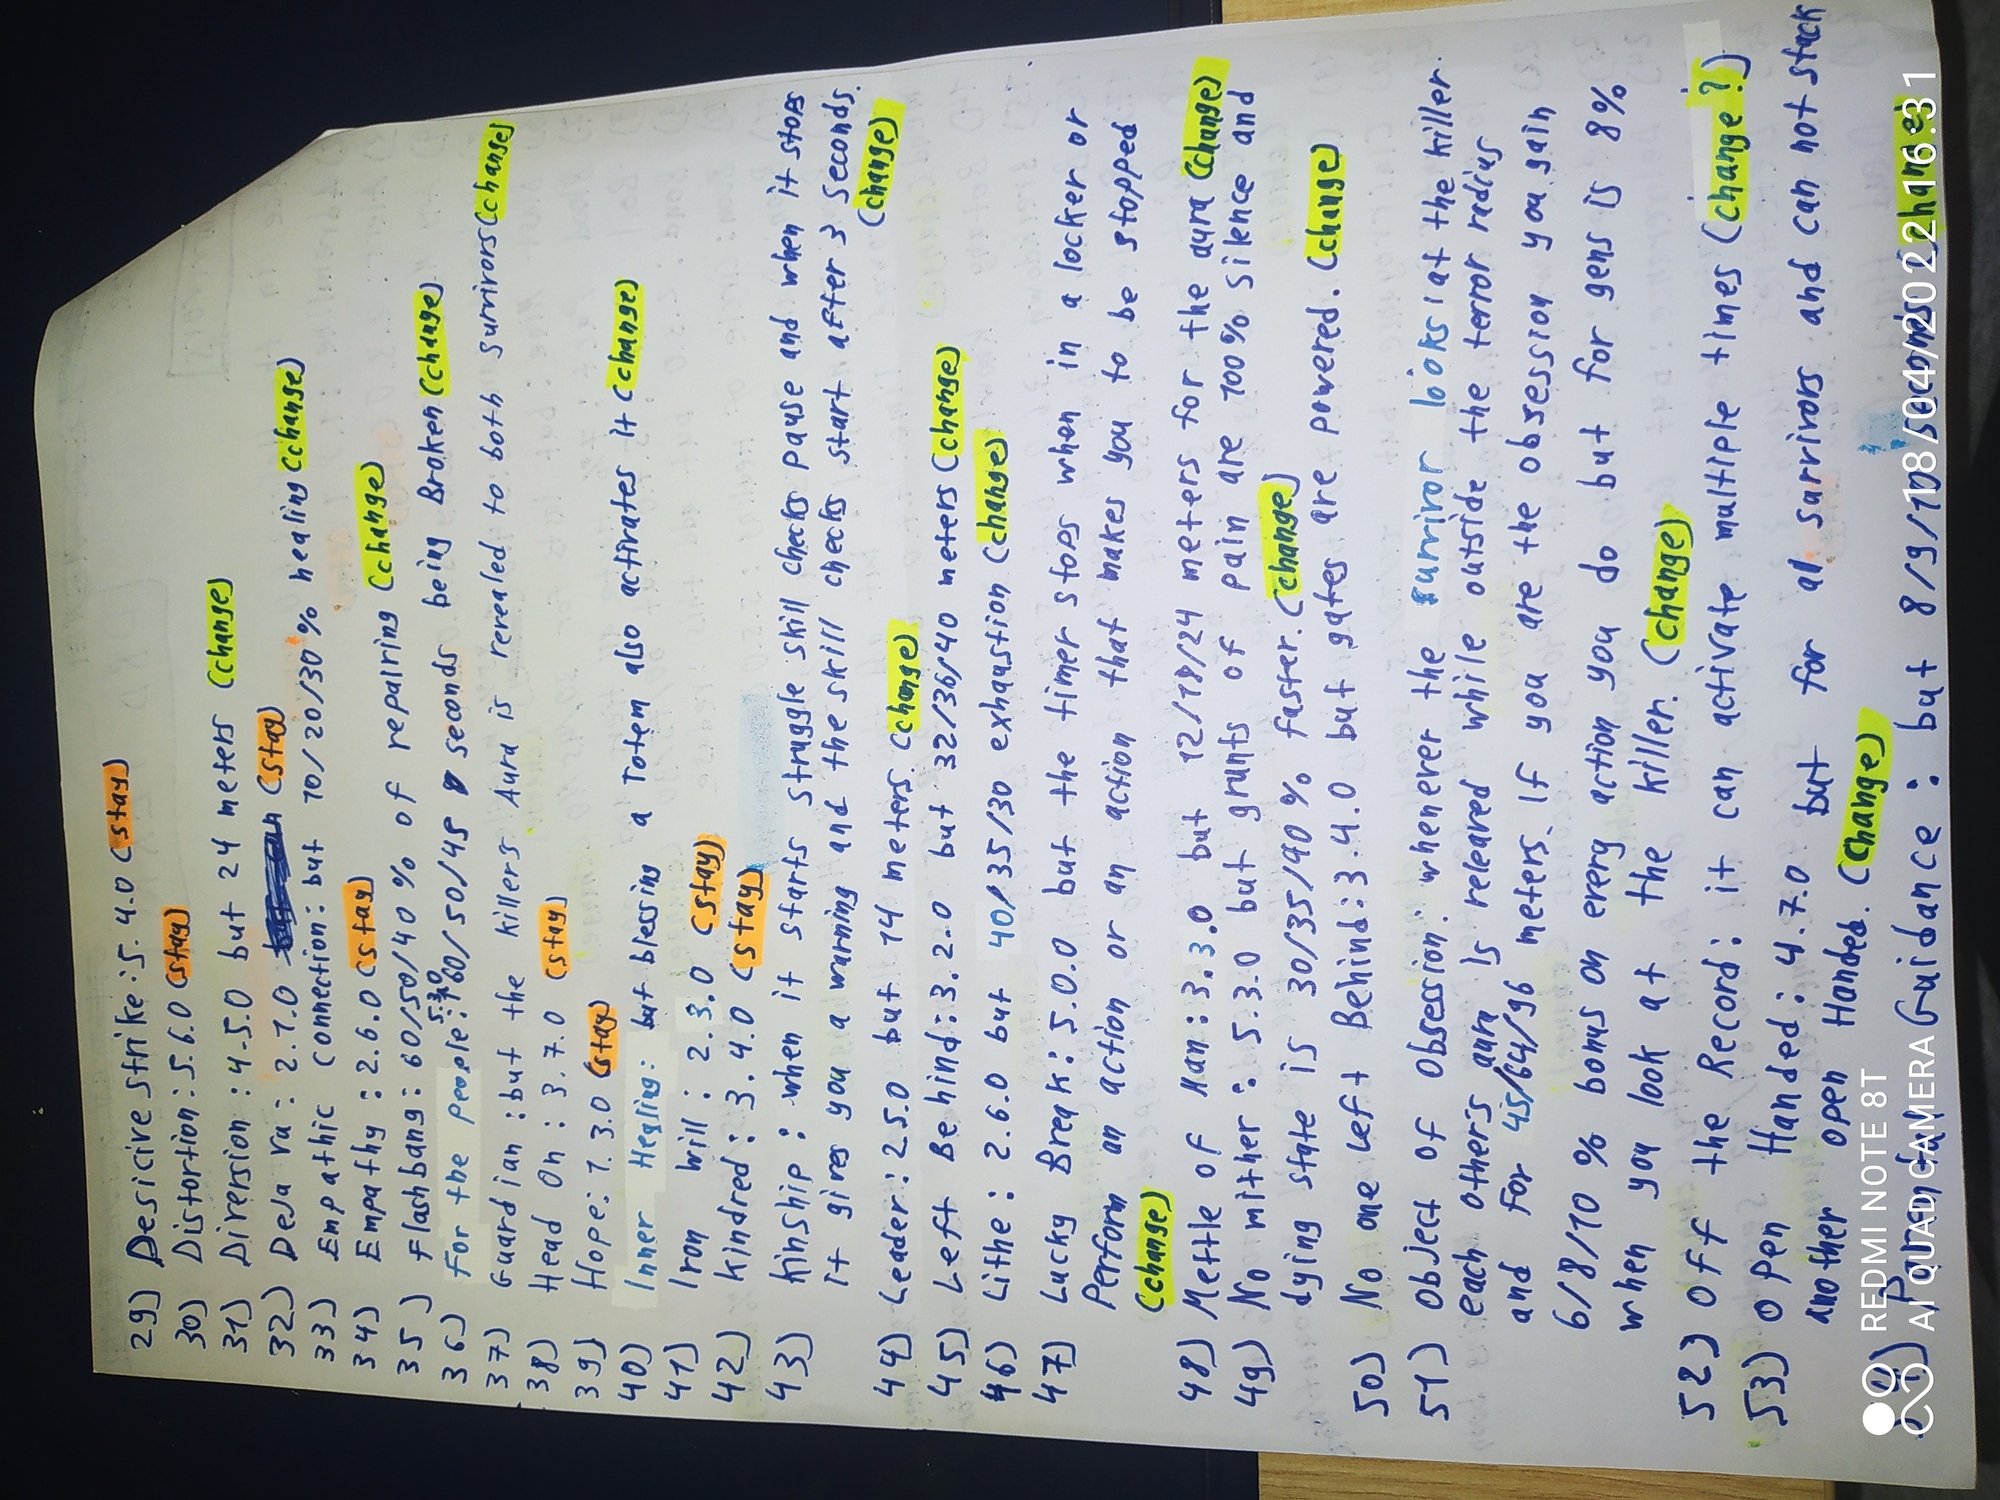 29) Desicive strike: 5.4.0 (stay)
30) Distortion: 5.6.0 (stay)
31) Diversion: 4.5.0 but 24 meters (change)
32) Deja vu: 2.1.0 (stay)
33) Empathic connection: but 10/20/30% healing (change)
34) Empathy: 2.6.0 (stay)
35) Flashbang: 60/50/40% of repairing (change)
36) For the people: 5.3.0 60/50/45 seconds being Broken (change)
37) Guardian: but the killers Aura is revealed to both survivors (change)
38) Head On: 3.7.0 (stay)
39) Hope: 1.3.0 (stay)
40) Inner Healing: but blessing a Totem also activates it (change)
41) Iron will: 2.3.0 (stay)
42) Kindred: 3.4.0 (stay)
43) Kinship: when it starts struggle skill checks pause and when it stops
it gives you a warning and the skill checks start after 3 seconds.
(change)
44) Leader: 2.5.0 but 14 meters (change)
45) Left Behind: 3.2.0 but 32/36/40 meters (change)
46) Lithe: 2.6.0 but 40/35/30 exhaustion (change)
47) Lucky Break: 5.0.0 but the timer stops when in a locker or
Perform an action or an action that makes you to be stopped
(change)
48) Mettle of Man: 3.3.0 but 12/18/24 meters for the aura (change)
49) No mither: 5.3.0 but grunts of pain are 100% silence and
dying state is 30/35/40% faster. (change)
50) No one Left Behind: 3.4.0 but gates are powered. (change)
51) Object of Obsession: whenever the survivor looks at the killer
each others aura is releaved while outside the terror redius
and For 45/64/96 meters. If you are the obsession you gain
6/8/10% bonus on every action you do but for gens is 8%
when you look at the killer. (change)
52) Off the Record: it can activate multiple times (change?)
53) Open Handed: 4.7.0 but for al survivors and can not stack
another Open Handed. (change)
Guidance: but 8/9/10 change
REDMI NOTE 8T
AI QUAD CAMERA
08/04/2021 16:31